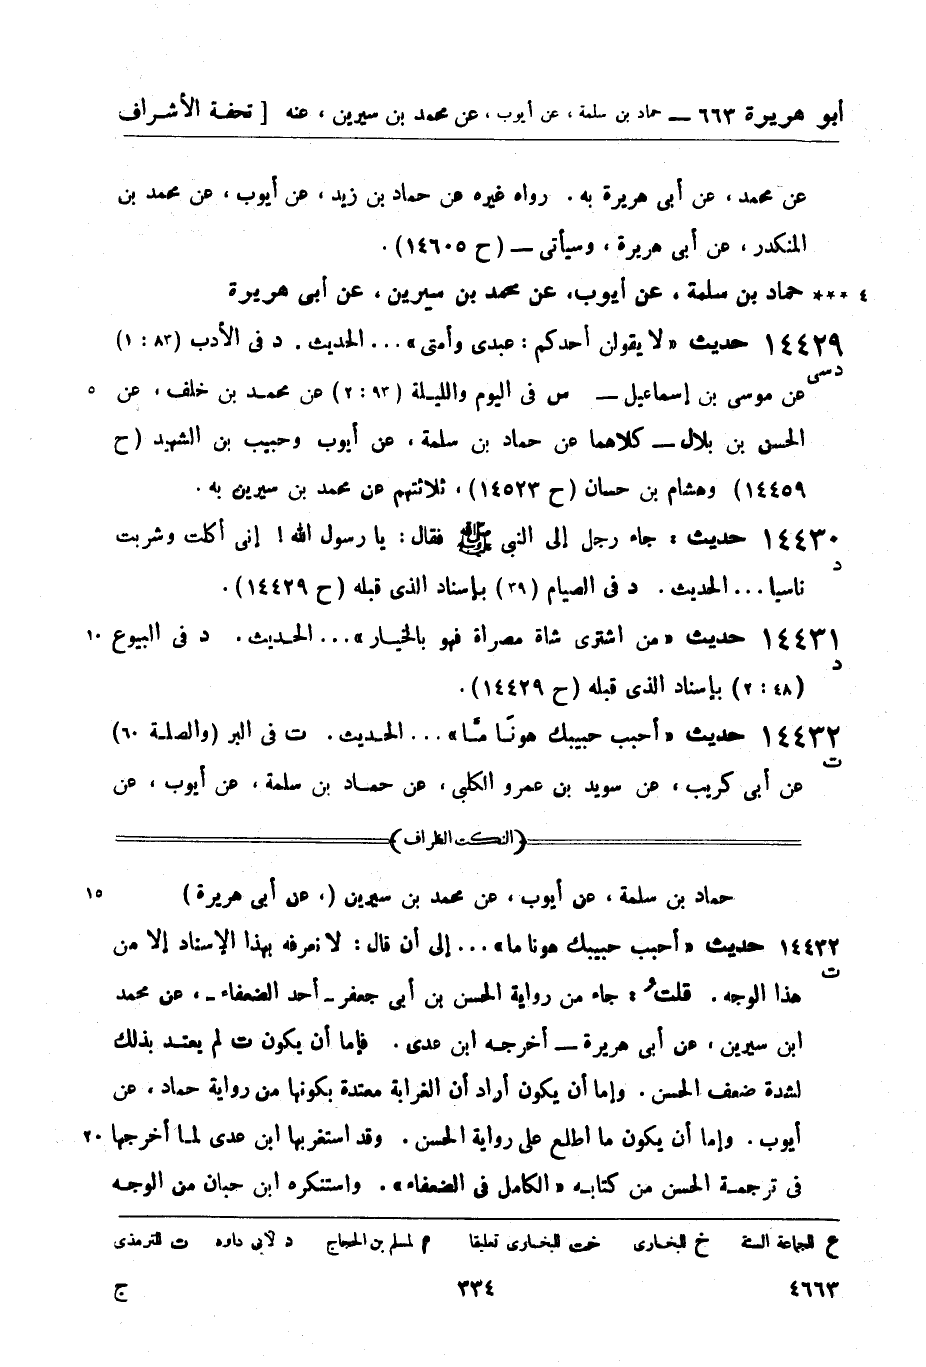 أبو هريرة ٦٦٣ — حماد بن سلمة ، عن أيوب ، عن محمد بن سيرين ، عنه [ تحفة الأشراف
عن محمد ، عن أبى هريرة به . رواه غيره عن حماد بن زيد ، عن أيوب ، عن محمد بن
المنكدر ، عن أبى هريرة ، وسيأتى — (ح ١٤٦٠٥) .
٤ *** حماد بن سلمة ، عن أيوب، عن محمد بن سيرين ، عن أبى هريرة
١٤٤٢٩ حديث « لا يقولن أحدكم : عبدى وأمتى» ... الحديث . د فى الأدب (٨٣ : ١)
دسى
عن موسى بن إسماعيل — س فى اليوم والليلة (٩٣ : ٢) عن محمد بن خلف ، عن ٥
الحسن بن بلال — كلاهما عن حماد بن سلمة ، عن أيوب وحبيب بن الشهيد (ح
١٤٤٥٩) وهشام بن حسان (ح ١٤٥٢٣) ، ثلاثتهم عن محمد بن سيرين به .
١٤٤٣٠ حديث : جاء رجل إلى النبى ﷺ فقال : يا رسول الله ! إنى أكلت وشربت
د
ناسيا ... الحديث . د فى الصيام (٣٩) بإسناد الذى قبله (ح ١٤٤٢٩) .
١٤٤٣١ حديث « من اشترى شاة مصراة فهو بالخيار» ... الحديث . د فى البيوع ١٠
د
(٤٨ : ٢) بإسناد الذى قبله (ح ١٤٤٢٩) .
١٤٤٣٢ حديث « أحبب حبيبك هونًا مَّا» ... الحديث . ت فى البر (والصلة ٦٠)
ت
عن أبى كريب ، عن سويد بن عمرو الكلبى ، عن حماد بن سلمة ، عن أيوب ، عن
(النكت الظراف)
حماد بن سلمة ، عن أيوب ، عن محمد بن سيرين (، عن أبى هريرة) ١٥
١٤٤٣٢ حديث « أحبب حبيبك هونا ما» ... إلى أن قال : لا نعرفه بهذا الإسناد إلا من
ت
هذا الوجه . قلتُ : جاء من رواية الحسن بن أبى جعفر - أحد الضعفاء - ، عن محمد
ابن سيرين ، عن أبى هريرة — أخرجه ابن عدى . فإما أن يكون ت لم يعتد بذلك
لشدة ضعف الحسن . وإما أن يكون أراد أن الغرابة معتدة بكونها من رواية حماد ، عن
أيوب . وإما أن يكون ما اطلع على رواية الحسن . وقد استغربها ابن عدى لما أخرجها ٢٠
فى ترجمة الحسن من كتابه « الكامل فى الضعفاء» . واستنكره ابن حبان من الوجه
ع للجماعة الستة خ للبخارى خت للبخارى تعليقا م لمسلم بن الحجاج د لأبى داود ت للترمذى
٤٦٦٣ ٣٣٤ ج